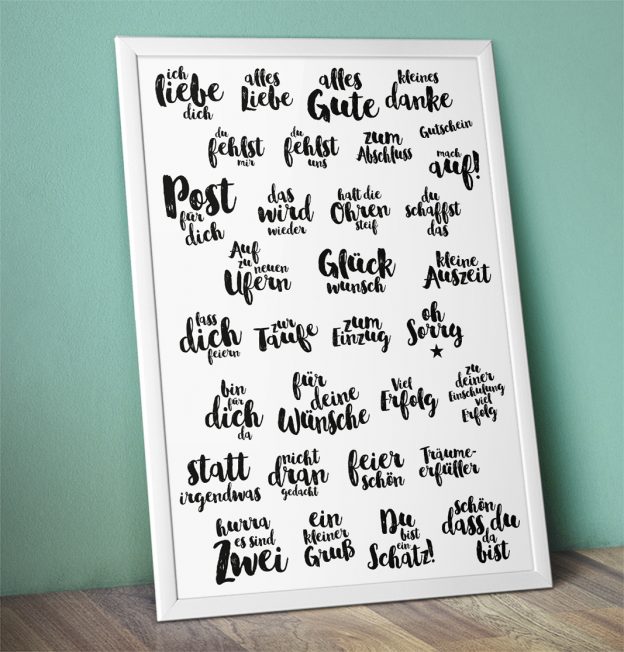 ich
liebe
dich
alles
Liebe
alles
Gute
kleines
danke
du
fehlst
mir
du
fehlst
uns
zum
Abschluss
Gutschein
mach
auf!
Post
für
dich
das
wird
wieder
halt die
Ohren
steif
du
schaffst
das
Auf
zu
neuen
Ufern
Glück
wunsch
kleine
Auszeit
lass
dich
feiern
zur
Taufe
zum
Einzug
oh
Sorry
bin
für
dich
da
für
deine
Wünsche
Viel
Erfolg
zu
deiner
Einschulung
viel
Erfolg
statt
irgendwas
nicht
dran
gedacht
feier
schön
Träume-
erfüller
hurra
es sind
Zwei
ein
kleiner
Gruß
Du
bist
ein
Schatz!
schön
dass du
da
bist